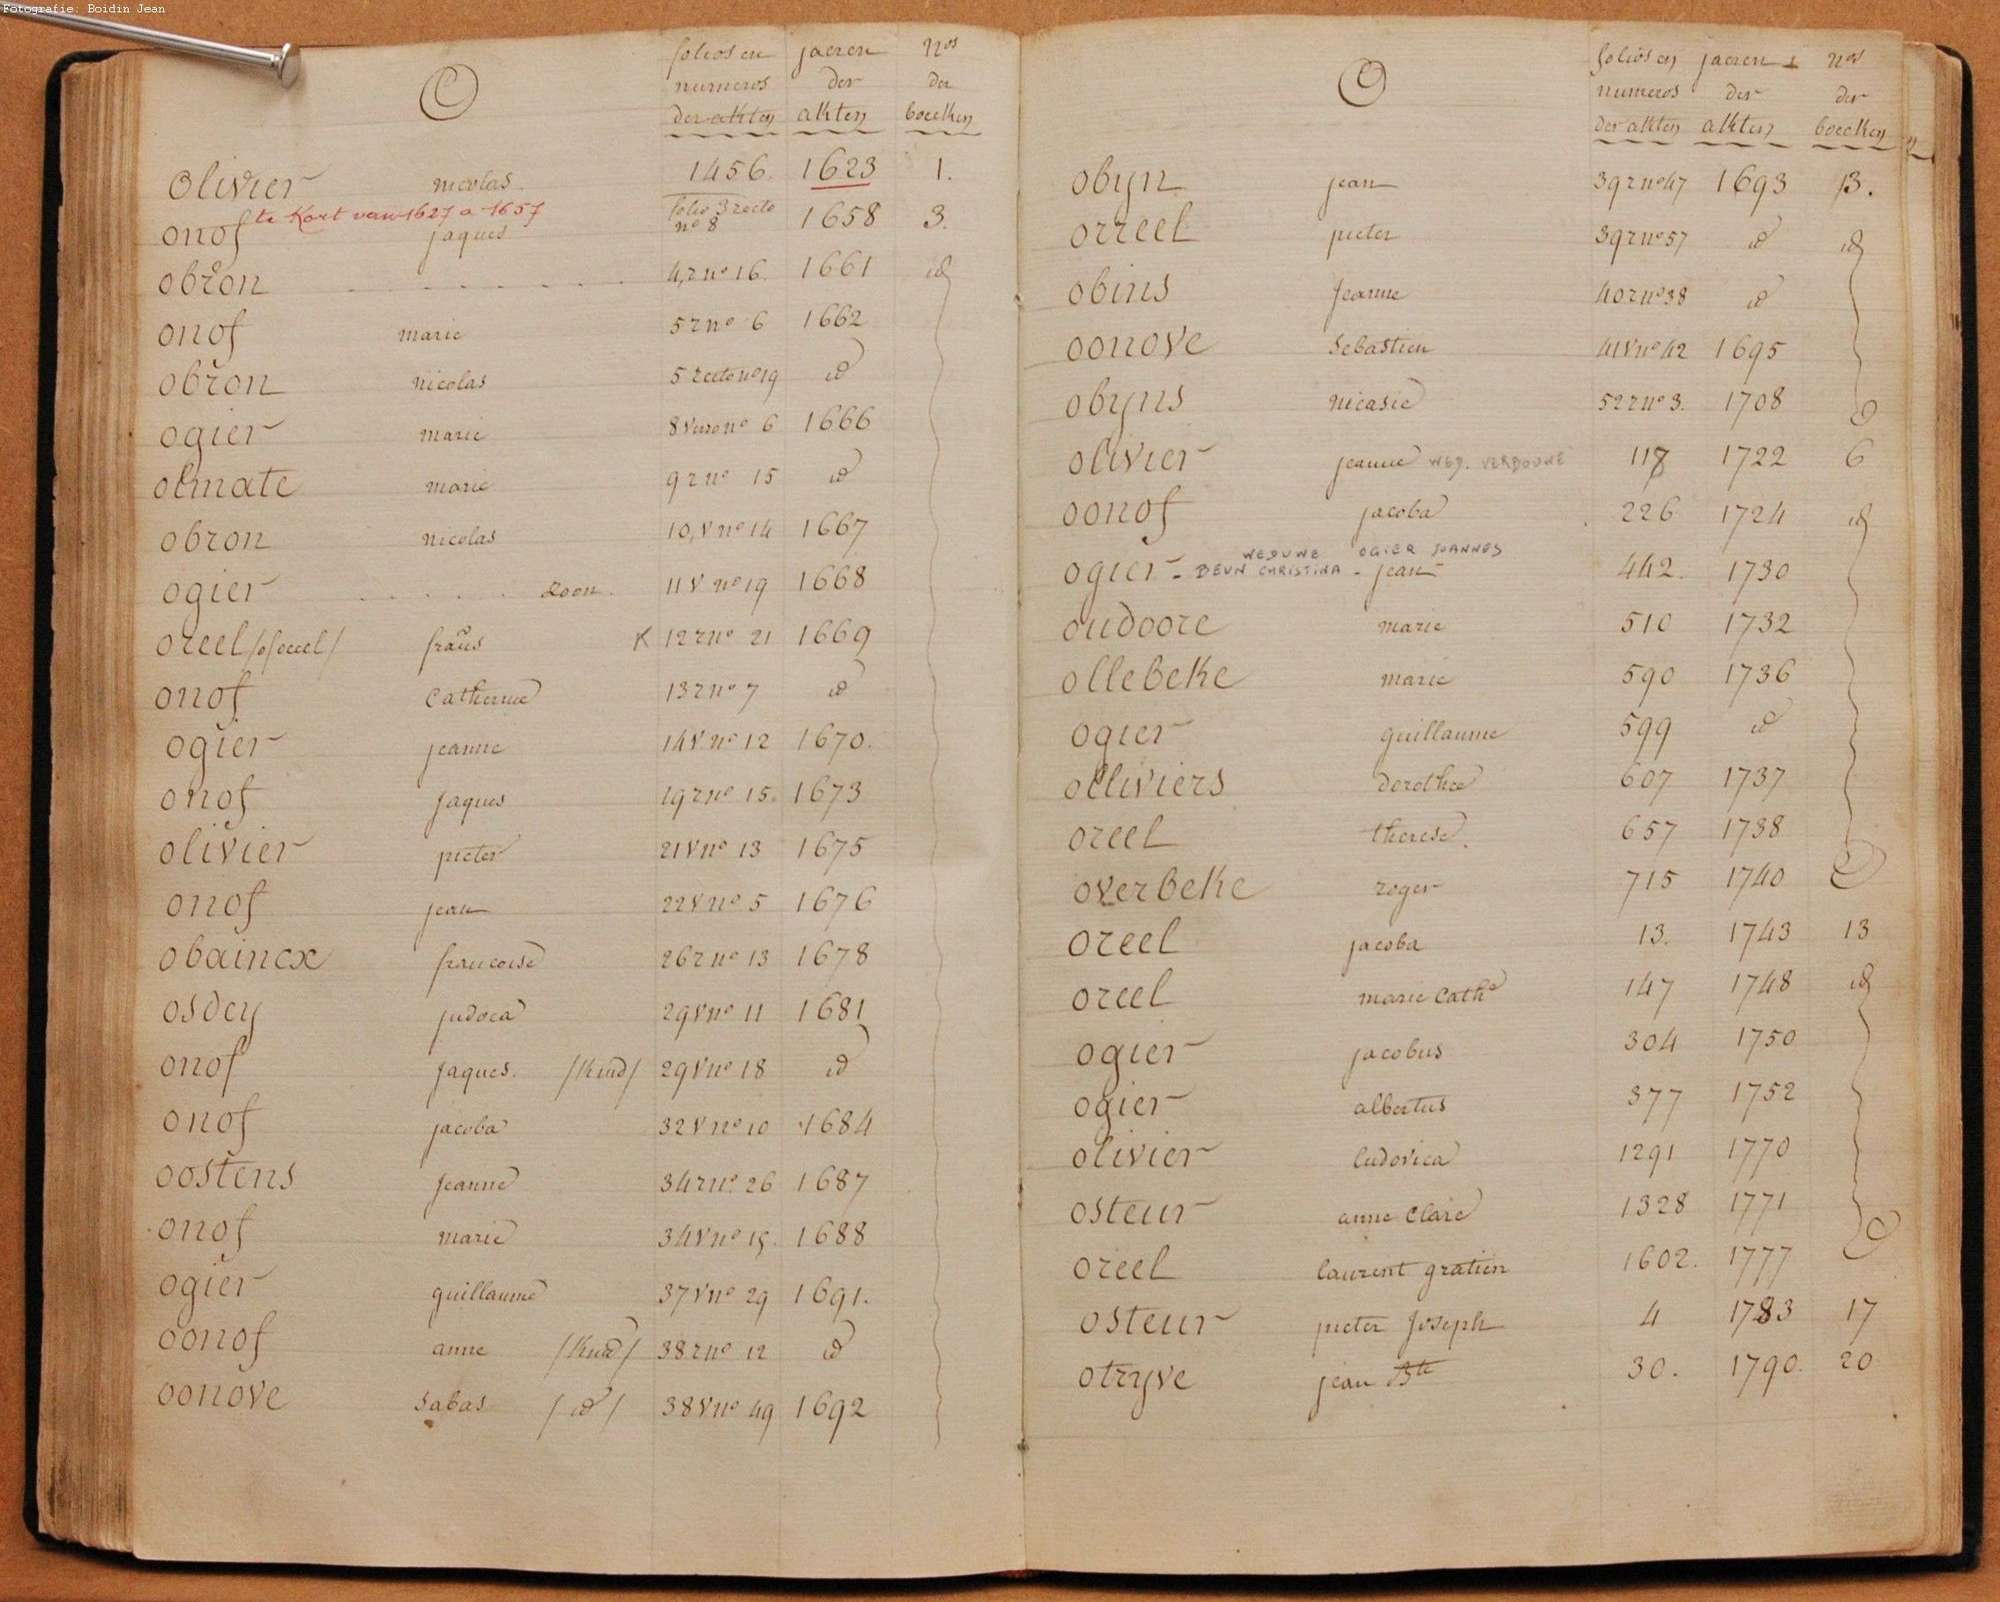 Fotografie: Boidin Jean
O folios en jaeren Nos
numeros der der
der akten akten boecken
olivier nicolas 1456. 1623 1.
te Kort van 1627 a 1657
onof jaques folio 3 recto n° 8 1658 3.
obron 4,r n° 16. 1661 id
onof marie 5 r n° 6 1662
obron nicolas 5 recto n° 19 id
ogier marie 8 verso n° 6 1666
olmate marie 9 r n° 15 id
obron nicolas 10,v n° 14 1667
ogier zoon. 11 v n° 19 1668
oreel frans 12 r n° 21 1669
onof Catherine 13 r n° 7 id
ogier jeanne 14 v n° 12 1670.
onof jaques 19 r n° 15. 1673
olivier pieter 21 v n° 13 1675
onof jean 22 v n° 5 1676
obaincx francoise 26 r n° 13 1678
osdey judoca 29 v n° 11 1681
onof jaques. /kind/ 29 v n° 18 id
onof jacoba 32 v n° 10 1684
oostens jeanne 34 r n° 26 1687
onof marie 34 v n° 15. 1688
ogier guillaume 37 v n° 29 1691.
oonof anne /kind/ 38 r n° 12 id
oonove sabas /id/ 38 v n° 49 1692
O folios en jaeren nos
numeros der der
der akten akten boecken
obyn jean 39 r n° 47 1693 3.
orreel pieter 39 r n° 57 id id
obins jeanne 40 r n° 38 id
oonove sebastien 41 v n° 42 1695
obyns nicasie 52 r n° 3. 1708
olivier jeanne WED. VERDOUWE 118 1722 6
oonof jacoba 226 1724 id
WEDUWE OGIER JOANNES
ogier - DEUN CHRISTINA - jean 442. 1730
oudoore marie 510 1732
ollebeke marie 590 1736
ogier guillaume 599 id
olliviers dorothee 607 1737
oreel therese. 657 1738
overbeke roger 715 1740
oreel jacoba 13. 1743 13
oreel marie Cathe 147 1748 id
ogier jacobus 304 1750
ogier albertus 377 1752
olivier ludovica 1291 1770
osteur anne Claire 1328 1771
oreel laurent gratien 1602. 1777
osteur pieter Joseph 4 1783 17
otryve jean Bte 30. 1790. 20